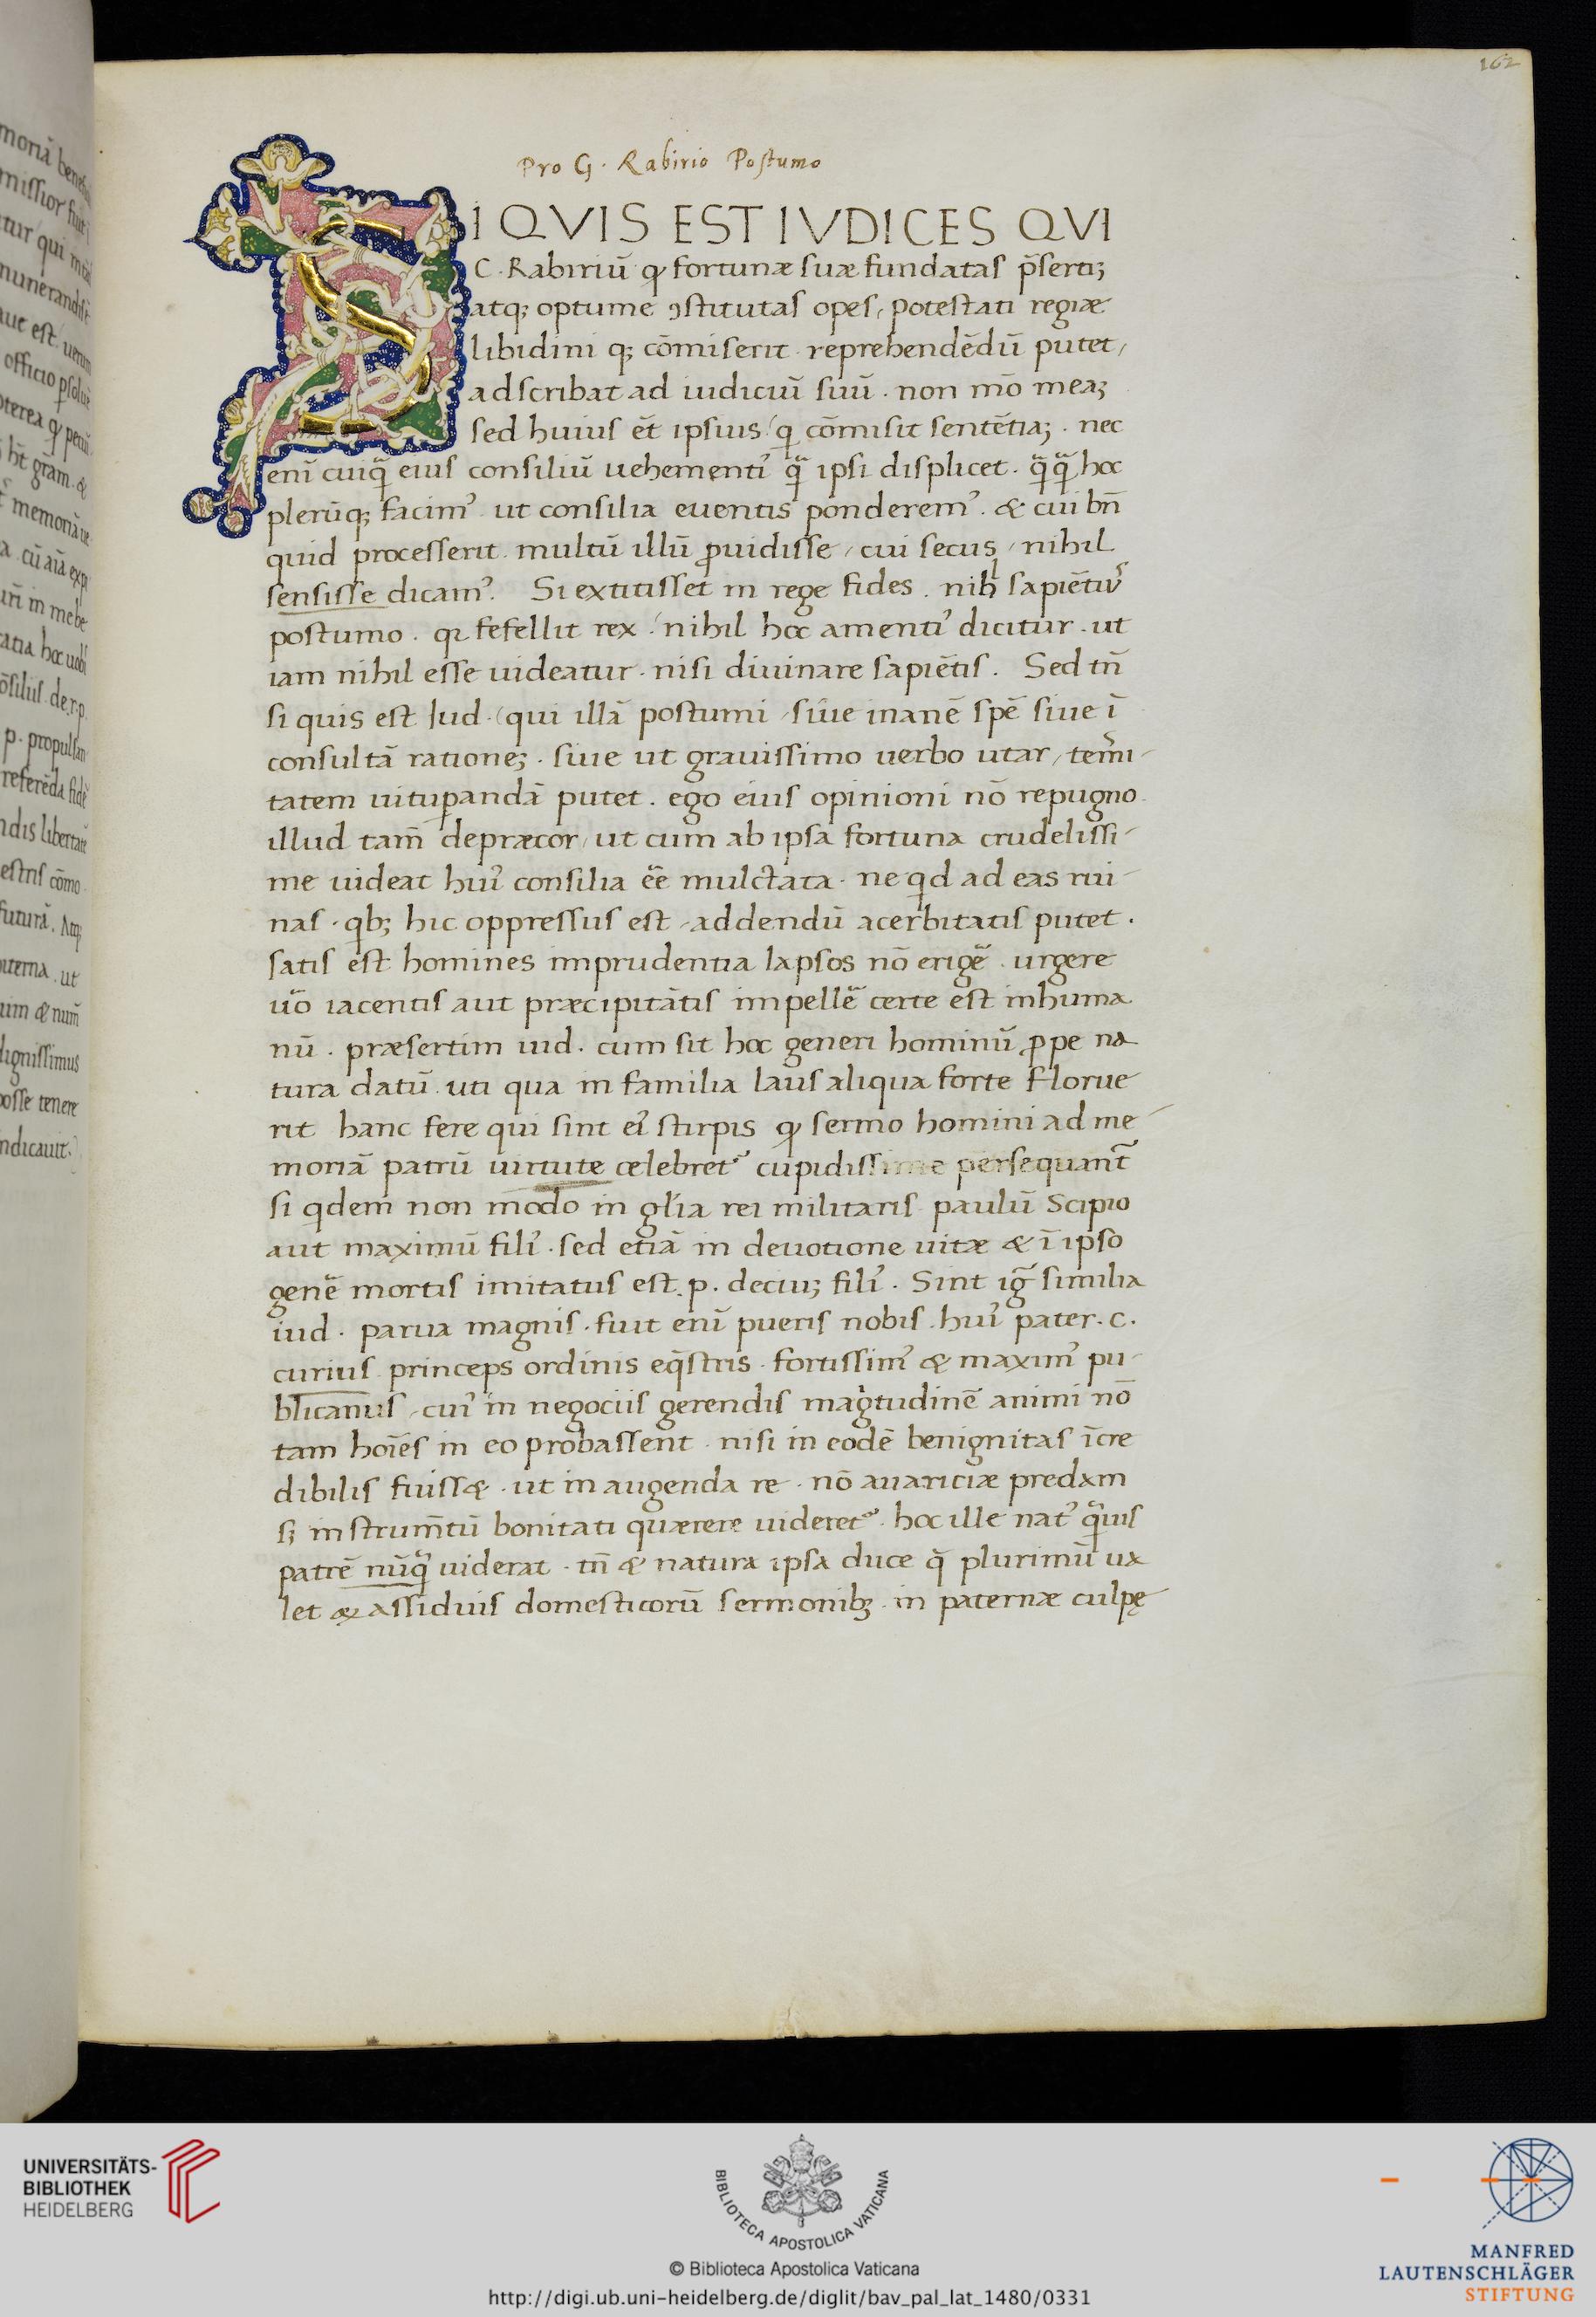 162
Pro G. Rabirio Postumo
SI QVIS EST IVDICES QVI
C. Rabiriū qͥ fortunæ suæ fundatas p̄serti;
atq; optume ꝯstitutas opes, potestati regiæ
libidini q; cōmiserit reprehendēdū putet,
adscribat ad iudiciū suū. non mō mea;
sed huius ēt ipsius, q cōmisit sentētia;. nec
eni cuiq̄ eius consiliū uehementiꝰ q̄ ipsi displicet. q̄q̄ hoc
plerūq; facimꝰ ut consilia euentis ponderemꝰ. & cui bn̄
quid processerit. multū illū ꝓuidisse, cui secus, nihil
sensisse dicamꝰ. Si extitisset in rege fides. nihl sapiētiꝰ
postumo. qꝛ fefellit rex, nihil hoc amentiꝰ dicitur. ut
iam nihil esse uideatur. nisi diuinare sapiētis. Sed tn̄
si quis est Iud. qui illā postumi, siue inanē spē siue ī
consultā ratione;. siue ut grauissimo uerbo utar, tem̄i-
tatem uituꝑandā putet. ego eius opinioni nō repugno
illud tam̄ depræcor, ut cum ab ipsa fortuna crudelissi-
me uideat huiꝰ consilia ēē mulctata. ne qͥd ad eas rui-
nas. qb; hic oppressus est, addendū acerbitatis putet.
satis est homines imprudentia lapsos nō erigē. urgere
uo̅ iacentis aut præcipitātis impellē certe est inhuma
nū. præsertim iud. cum sit hoc generi hominū ꝓpe na
tura datū. uti qua in familia laus aliqua forte florue
rit hanc fere qui sint eiꝰ stirpis qͥ sermo homini ad me-
moriā patrū uirtute celebretᷣ cupidissime persequant̄
si qͥdem non modo in glīa rei militaris paulū Scipio
aut maximū filiꝰ. sed etiā in deuotione uitæ & ī ipso
genē mortis imitatus est. p. deciu; filiꝰ. Sint ig̅ similia
iud. parua magnis. fuit enī pueris nobis. huiꝰ pater. c.
curius princeps ordinis eq̄stris. fortissimꝰ & maximꝰ pu-
blicanus, cuiꝰ in negociis gerendis magͥtudinē animi nō
tam hoīes in eo probassent. nisi in eodē benignitas īcre
dibilis fuiss&. ut in augenda re. nō auariciæ predam
s; instrum̄tū bonitati quærere uideretᷣ. hoc ille natꝰ q̄uis
patrē nūq̄ uiderat. tn̄ & natura ipsa duce q̄ plurimū ua
let & assiduis domesticorū sermonib;. in paternæ culpę
UNIVERSITÄTS-
BIBLIOTHEK
HEIDELBERG
BIBLIOTECA APOSTOLICA VATICANA
© Biblioteca Apostolica Vaticana
http://digi.ub.uni-heidelberg.de/diglit/bav_pal_lat_1480/0331
MANFRED
LAUTENSCHLÄGER
STIFTUNG